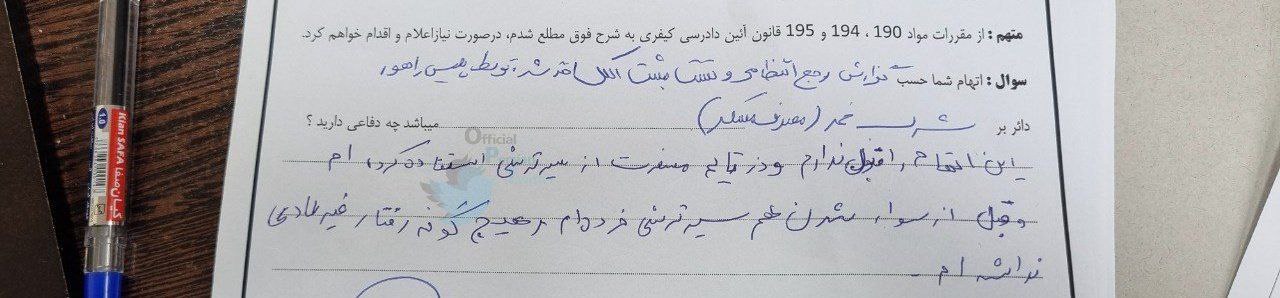 متهم : از مقررات مواد 190 ، 194 و 195 قانون آئین دادرسی کیفری به شرح فوق مطلع شدم، درصورت نیازاعلام و اقدام خواهم کرد.
سوال : اتهام شما حسب گزارش مرجع انتظامی و تست مثبت الکل اخذ شده توسط پلیس راهور
دائر بر شرب خمر (مصرف مسکر) میباشد چه دفاعی دارید ؟
این اتهام را قبول ندارم و در تمام مسافرت از سیر ترشی استفاده کرده ام
و قبل از سوار شدن هم سیر ترشی خورده ام و هیچ گونه رفتار غیر عادی
نداشته ام -
Official
Kian SAFA
1.0
کیان صفا